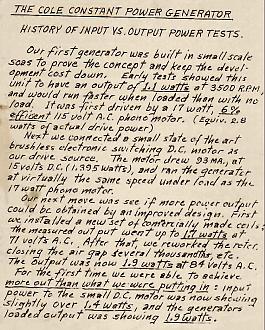 THE COLE CONSTANT POWER GENERATOR
HISTORY OF INPUT VS. OUTPUT POWER TESTS.
Our first generator was built in small scale
so as to prove the concept and keep the devel-
opment cost down. Early tests showed this
unit to have an output of 1.1 watts at 3500 R.P.M,
and would run faster when loaded than with no
load. It was first driven by a 17 watt, 6%
efficent 115 volt A.C. phono motor. (Equiv. 2.8
watts of actual drive power)
Next we connected a small state of the art
brushless electronic switching D.C. motor as
our drive source. The motor drew 93 MA, at
15 volts D.C. (1.395 watts), and ran the generator
at virtually the same speed under load as the
17 watt phono motor.
Our next move was see if more power output
could be obtained by an improved design. First
we installed a new set of comercially made coils:
the measured out put went up to 1.7 watts at
71 volts A.C. After that, we reworked the rotor,
closing the air gap several thousandths, etc.
The output was now 1.9 watts at 84 volts A.C.
For the first time we were able to achieve
more out than what we were putting in: input
power to the small D.C. motor was now showing
slightly over 1.4 watts, and the generators
loaded output was showing 1.9 watts.